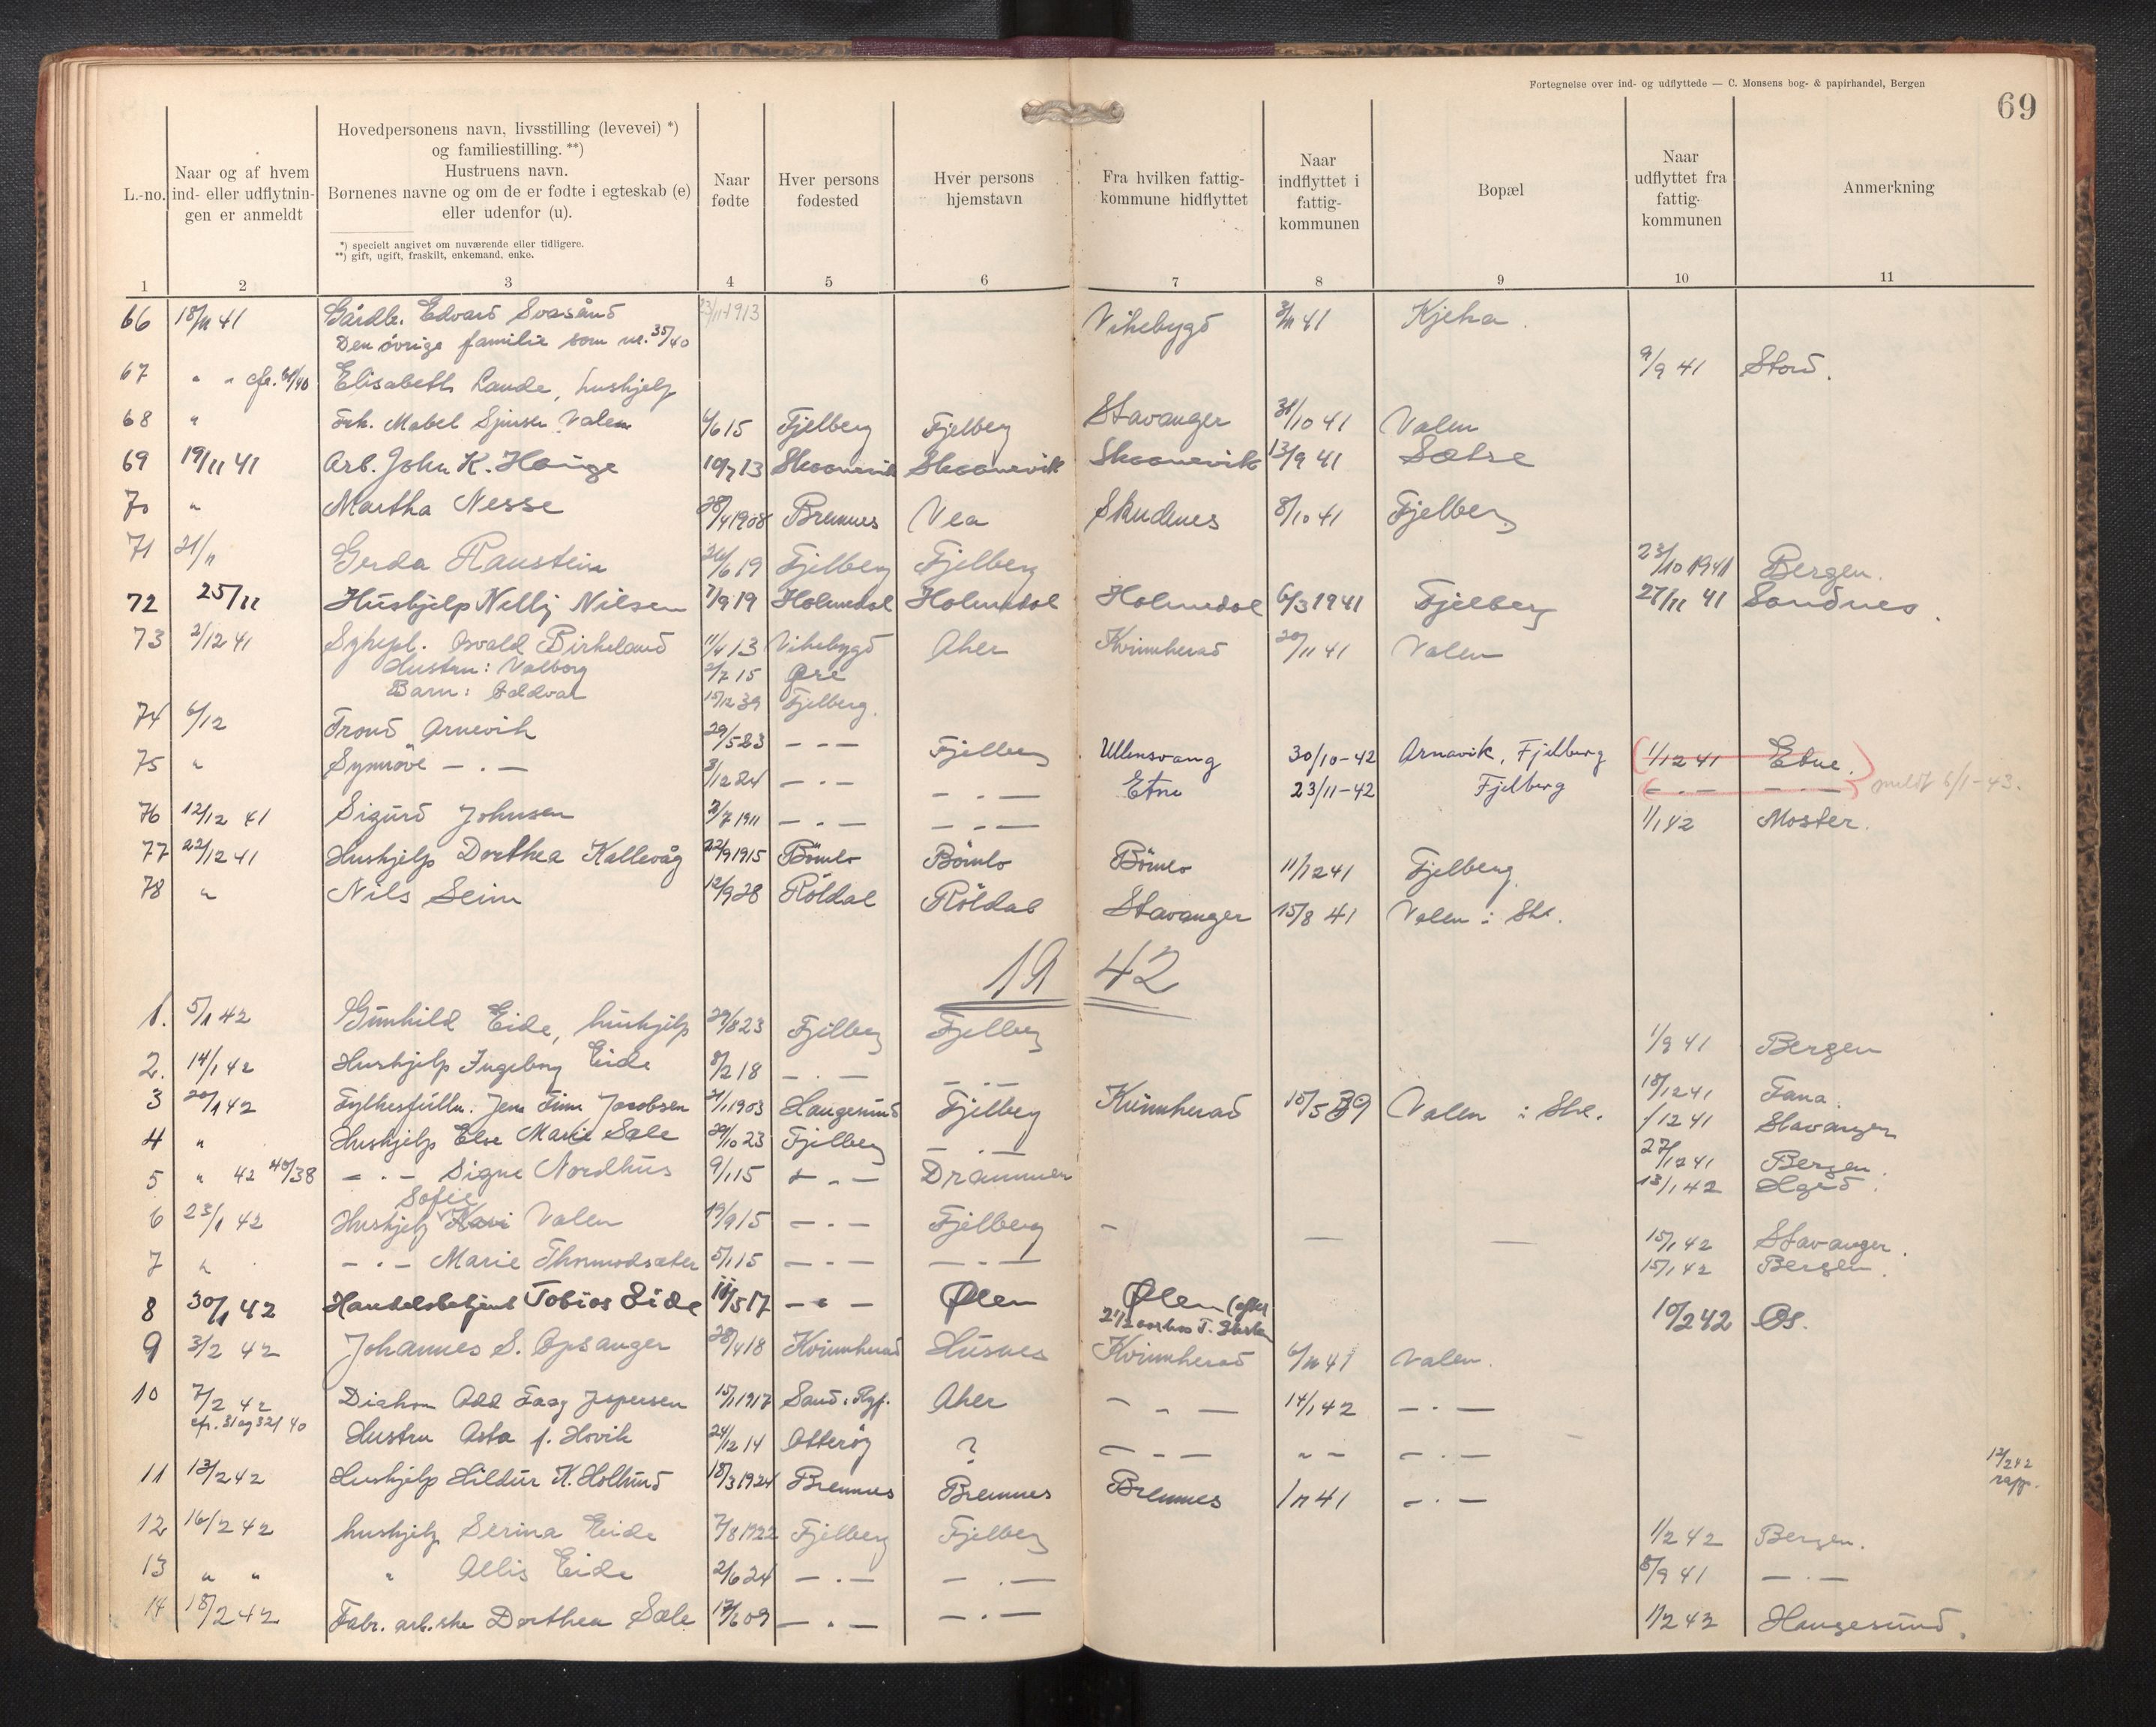 Fortegnelse over ind- og udflyttede — C. Monsens bog- & papirhandel, Bergen
69
L.-no.
Naar og af hvem
ind- eller udflytnin-
gen er anmeldt
Hovedpersonens navn, livsstilling (levevei) *)
og familiestilling. **)
Hustruens navn.
Børnenes navne og om de er fødte i egteskab (e)
eller udenfor (u).
*) specielt angivet om nuværende eller tidligere.
**) gift, ugift, fraskilt, enkemand, enke.
Naar
fødte
Hver persons
fødested
Hver persons
hjemstavn
Fra hvilken fattig-
kommune hidflyttet
Naar
indflyttet i
fattig-
kommunen
Bopæl
Naar
udflyttet fra
fattig-
kommunen
Anmerkning
1 2 3 4 5 6 7 8 9 10 11
66 18/11 41 Gårdb. Edvard Svasånd 23/11-1913 Vikebygd 3/11 41
Den övrige familie som nr. 35/40
67 " " cfr. 61/40 Elisabeth Lande, hushjelp 9/9 41 Stord.
68 " Frk. Mabel Valen 6/6 15 Fjelberg Fjelberg Stavanger 31/10 41 Valen
69 19/11 41 Arb. John K. Hauge 10/7 13 Skaanevik Skaanevik Skaanevik 13/9 41 Sætre
70 " Martha Nesse 28/4 1908 Bremnes Vea Skudenes 8/10 41 Fjelberg
71 21/11 Gerda Raustein 26/6 19 Fjelberg Fjelberg 23/10 1941 Bergen.
72 25/11 Hushjelp Nelly Nilsen 7/9 19 Holmedal Holmedal Holmedal 6/3 1941 Fjelberg 27/11 41 Sandnes.
73 2/12 41 Sykepl. Osvald Birkeland 11/4 13 Vikebygd Aker Kvinnherad 20/11 41 Valen
Hustru: Valborg 2/7 15 Øre
Barn: Oddvar 15/12 39 Fjelberg.
74 6/12 Trond Arnevik 29/5 23 — - — Fjelberg Ullensvang 30/10-42 Arnavik, Fjelberg (1/12 41 Etne.)
75 " Synnöve — . — 3/12 24 — . — — . — Etne 23/11-42 Fjelberg (— . — — . —) meldt 6/1-43.
76 12/12 41 Sigurd Johnsen 2/7 1911 — . — — . — 1/1 42 Moster.
77 22/12 41 Hushjelp Dorthea Kallevåg 22/9 1915 Bömlo Bömlo Bömlo 11/12 41 Fjelberg
78 " Nils Seim 12/9 28 Röldal Röldal Stavanger 15/8 41 Valen i Shl.
1942
1. 5/1 42 Gunhild Eide, hushjelp 29/8 23 Fjelberg Fjelberg 1/9 41 Bergen
2. 14/1 42 Hushjelp Ingeborg Eide 8/2 18 — . — — . — 18/12 41 Fana.
3 20/1 42 Fylkesfullm. Jens Finn Jacobsen 21/1 1903 Haugesund Fjelberg Kvinnherad 15/5 39 Valen i Shl. 1/12 41 Stavanger
4 " Hushjelp Else Marie Sæle 29/10 23 Fjelberg — . — 27/12 41 Bergen.
5 " 42 40/38 — . — Signe Nordhus 9/1 15 — . — Drammen 13/1 42
Sofie
6 23/1 42 Hushjelp Kari Valen 19/9 15 — . — Fjelberg — — — 15/1 42 Stavanger.
7 " — . — Marie Thormodsæter 5/1 15 — . — — . — 15/1 42 Bergen.
8 30/1 42 Handelsbetjent Tobias Eide 11/5 17 — . — Ølen Ølen (efter 10/2 42 Os.
9 3/2 42 Johannes S. Opsanger 28/4 18 Kvinnherad Husnes Kvinnherad 6/11 41 Valen.
10 7/2 42 Diakon Odd Faag Jespersen 15/1 1917 Sand i Ryf. Aker — . — 14/1 42 — . —
cfr. 31 og 32/40 Hustru Asta f. Hovik 24/12 14 Otteröy ? — . — " " — . —
11 13/2 42 Hushjelp Hildur K. Hollund 18/3 1924 Bremnes Bremnes Bremnes 1/11 41 — . — 12/2 42
rapp.
12 16/2 42 hushjelp Serina Eide 7/8 1922 Fjelberg Fjelberg 1/2 42 Bergen.
13 " " " Allis Eide 2/6 24 — . — — . — 8/9 41 — . —
14 18/2 42 Fabr. arb.ske Dorthea Sæle 17/6 09 — . — — . — 1/2 42 Haugesund.